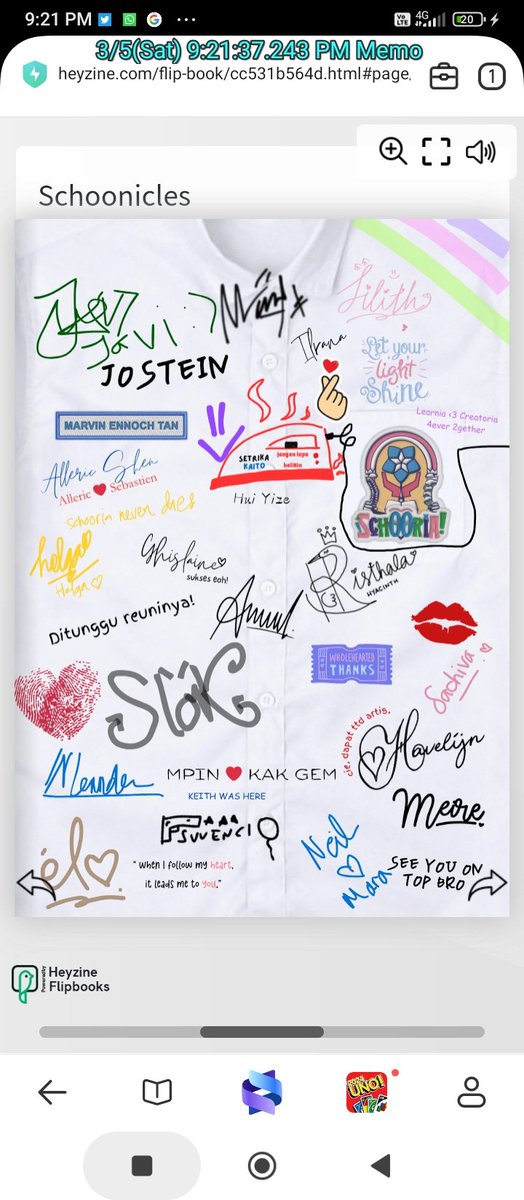 9:21 PM
4G
20
3/5(Sat) 9:21:37.243 PM Memo
heyzine.com/flip-book/cc531b564d.html#page,
1
Schoonicles
Javi :)
JOSTEIN
Ilrana
Lilith
Let your
light
Shine
Learnia <3 Creatoria
4ever 2gether
MARVIN ENNOCH TAN
SETRIKA
KAITO
jangan lupa
balikin
Hui Yize
SCHOORIA!
Alleric Shen
Alleric Sebastien
schooria never dies
helga
Helga
Ghislaine
sukses eoh!
Risthala
HYACINTH
Ditunggu reuninya!
WHOLEHEARTED
THANKS
Sachiva
cie, dapat ttd artis.
Havelijn
MPIN ❤ KAK GEM
KEITH WAS HERE
Meore.
él
" When I follow my heart,
it leads me to you."
Neil
Mara
SEE YOU ON
TOP BRO
Powered by
Heyzine
Flipbooks
UNO!